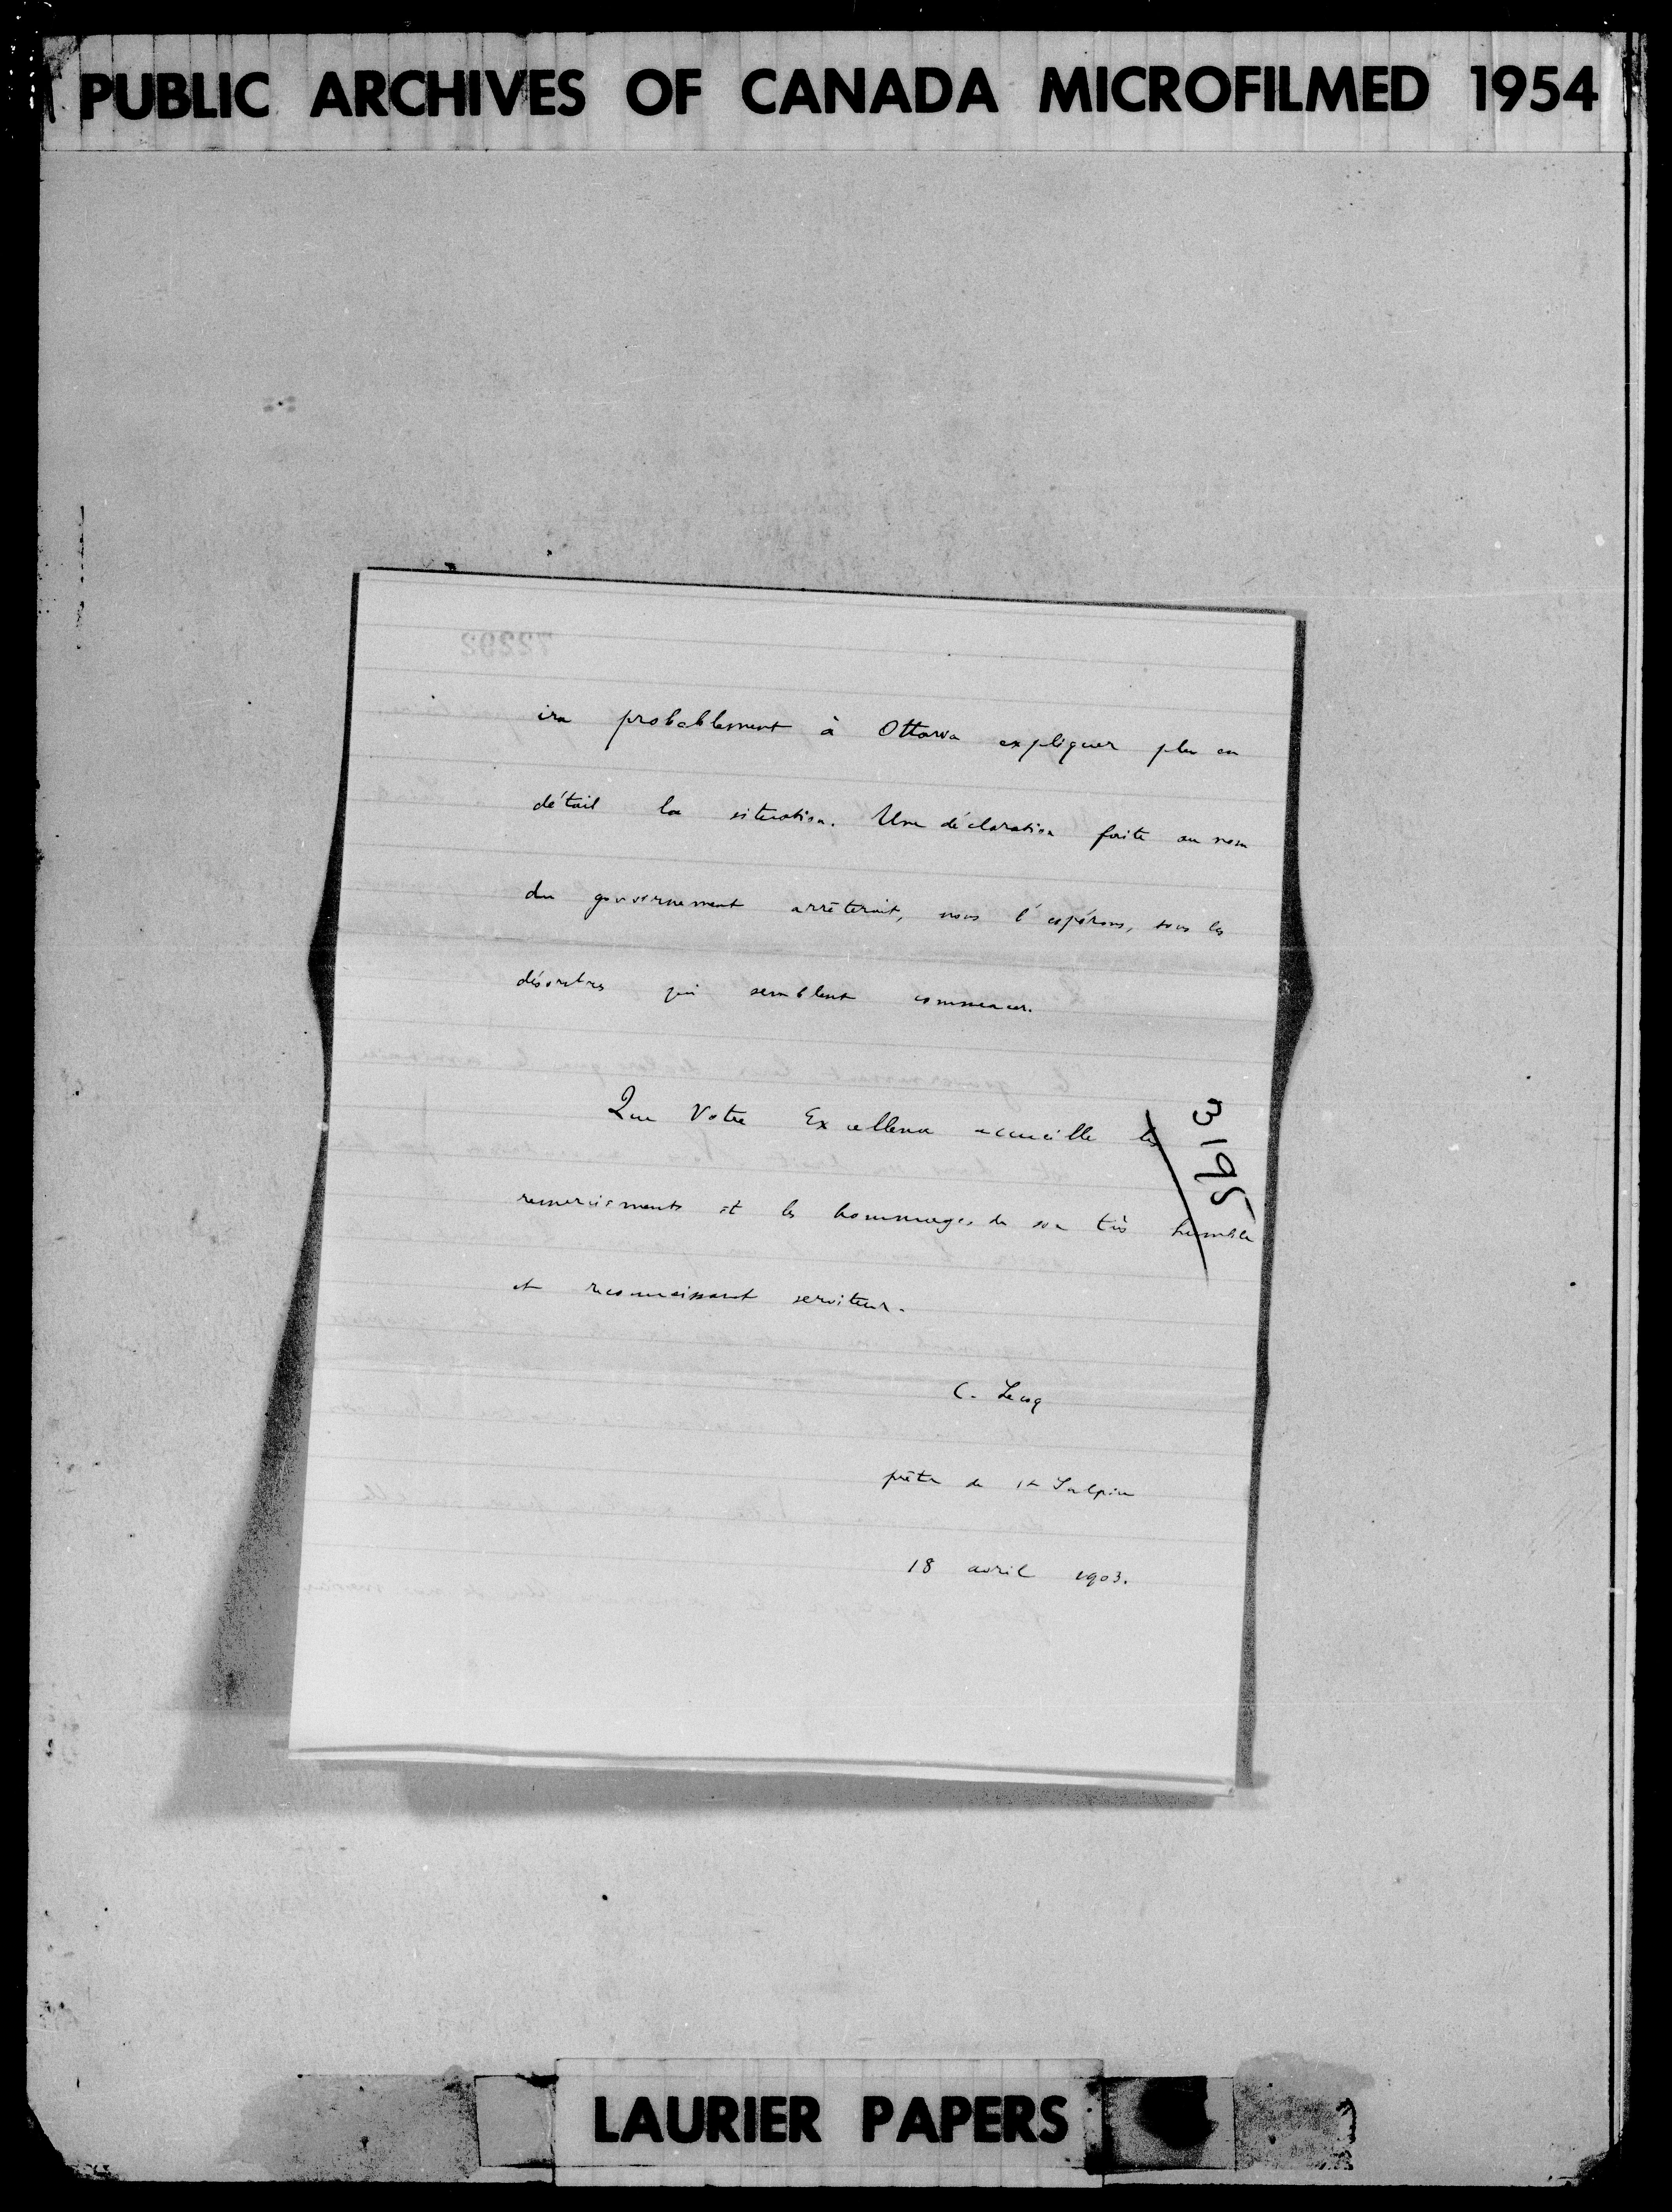 PUBLIC ARCHIVES OF CANADA MICROFILMED 1954
72292
ira probablement à Ottawa expliquer plus en
détail la situation. Une déclaration faite au nom
du gouvernement arrêterait, nous l'espérons, tous les
désordres qui semblent commencer.
Que Votre Excellence accueille les
remerciements et les hommages de son très humble
et reconnaissant serviteur.
C. Lecoq
prêtre de St Sulpice
18 avril 1903.
3195
LAURIER PAPERS